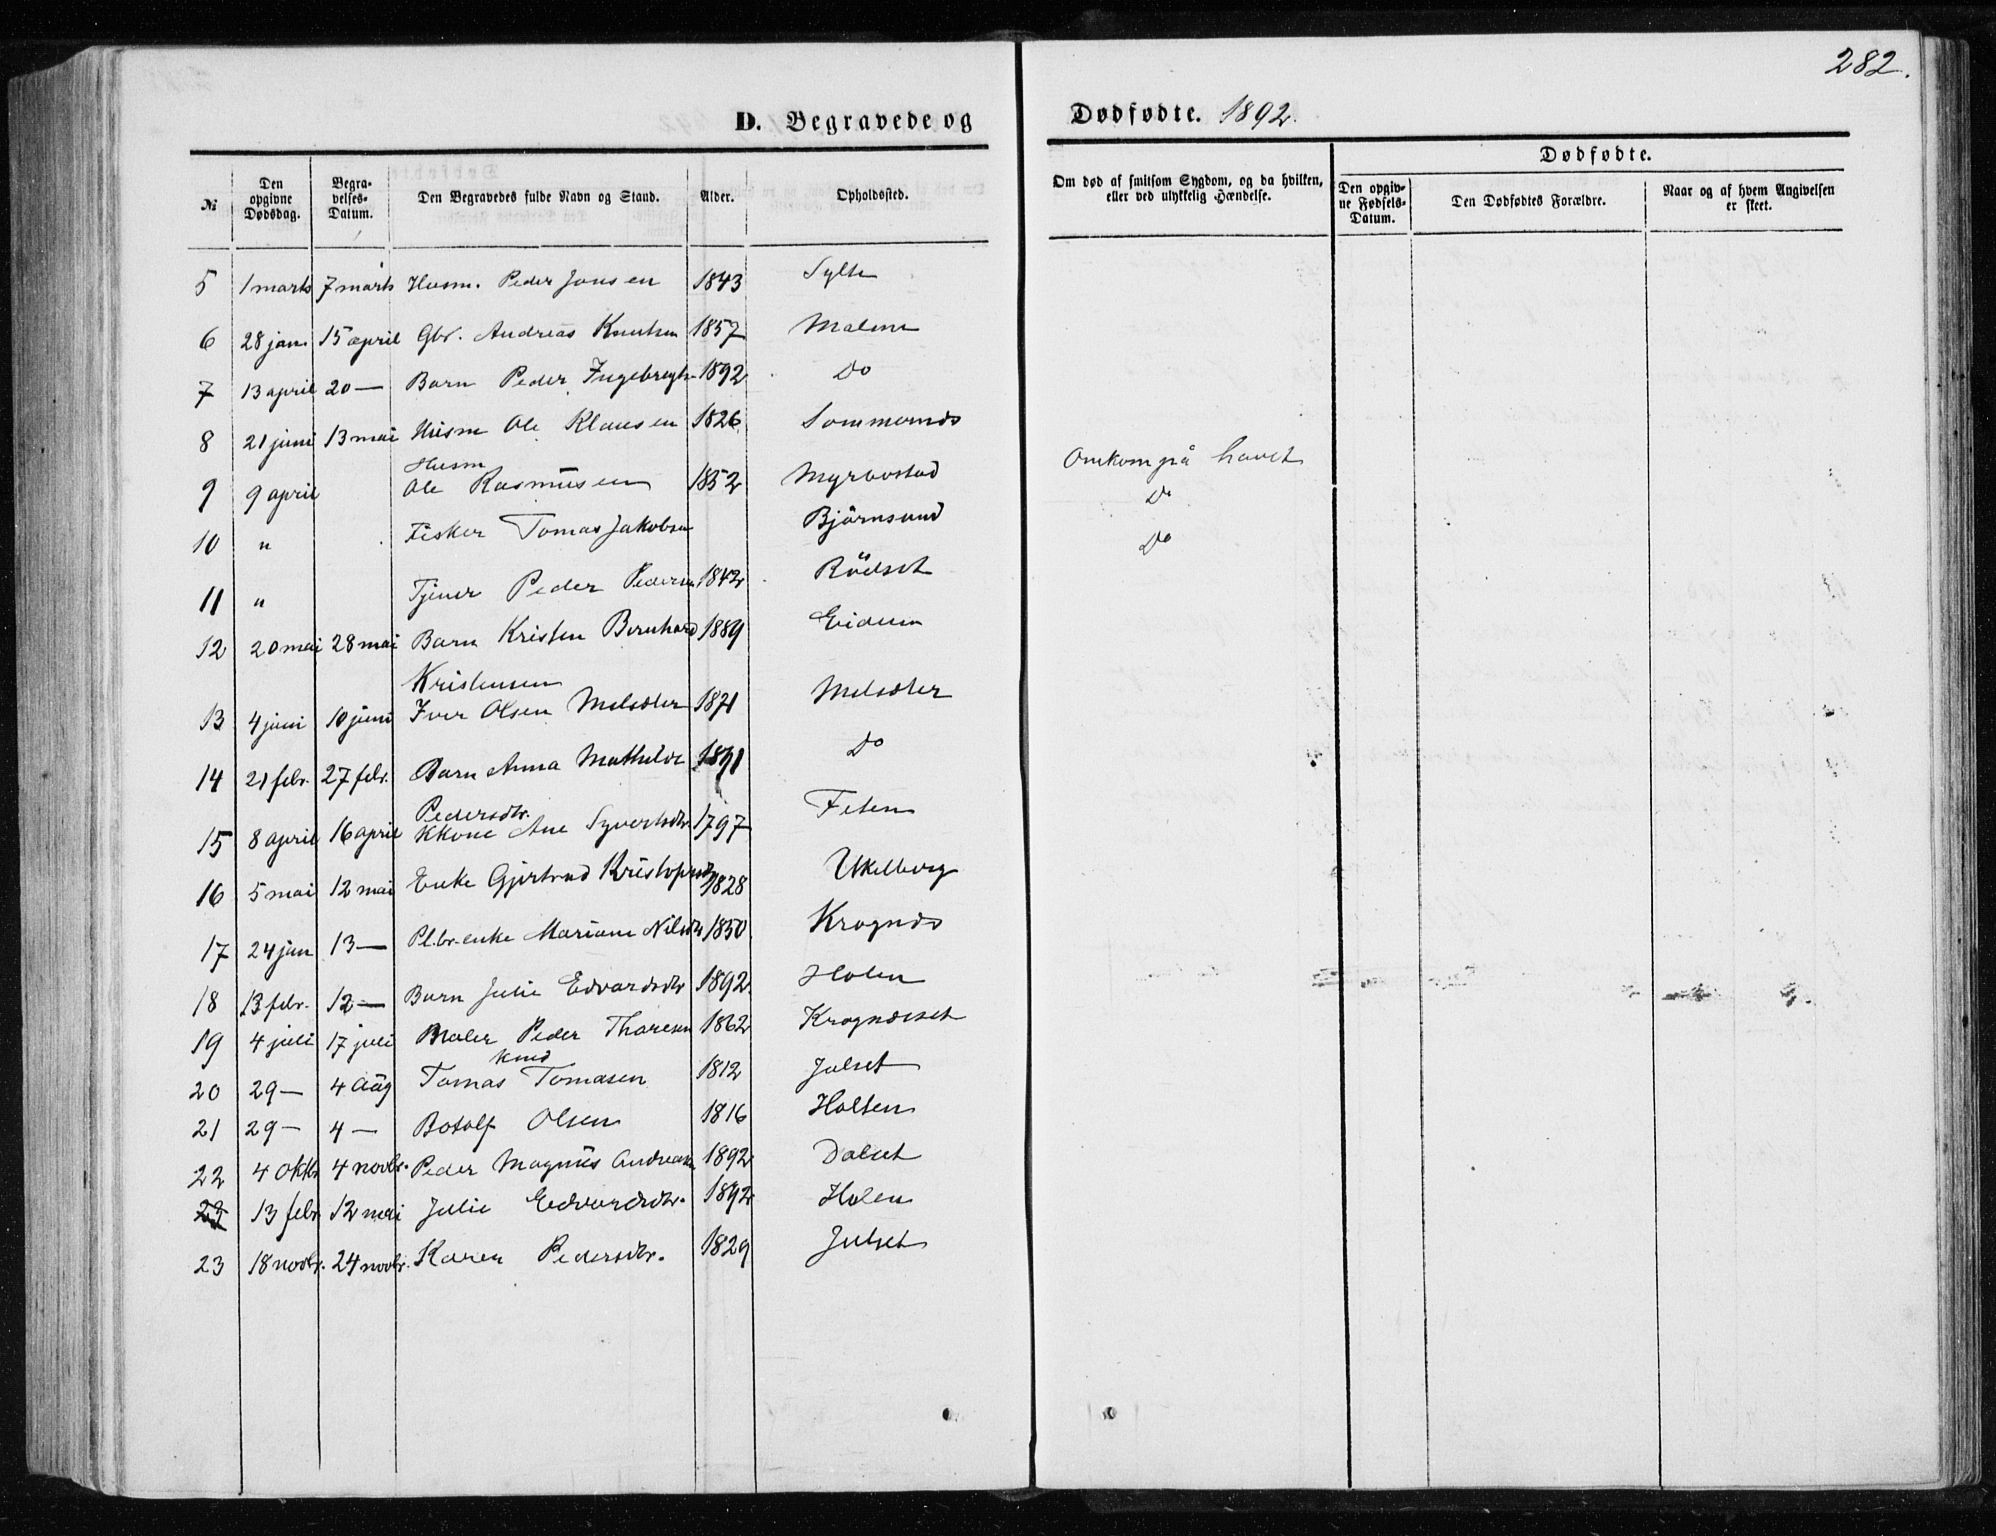 282.
D. Begravede og Dødfødte. 1892.
№ Den opgivne Dødsdag. Begravelses-Datum. Den Begravedes fulde Navn og Stand. Alder. Opholdssted. Om død af smitsom Sygdom, og da hvilken, eller ved ulykkelig Hændelse. Dødfødte.
Den opgivne Fødsels-Datum. Den Dødfødtes Forældre. Naar og af hvem Angivelsen er skeet.
5 1 marts 7 marts Husm. Peder Jonsen 1843 Sylte
6 28 jan. 15 april Gbr. Andreas Knutsen 1857 Malme
7 13 april 20 — Barn Peder Ingebregts 1892 Do
8 21 juni 13 mai Husm Ole Klausen 1826 Sommernes
Husm
9 9 april Ole Rasmusen 1852 Myrbostad Omkom på havet
10 " Fisker Tomas Jakobsen Björnsund Do
11 " Tjener Peder Pedersen 1842 Rödset Do
12 20 mai 28 mai Barn Kristen Bernhard 1889 Eidem
Kristensen
13 4 juni 10 juni Iver Olsen Melsæter 1871 Melsæter
14 21 febr. 27 febr. Barn Anna Mathilde 1891 Do
Pedersdtr.
15 8 april 16 april Kkone Ane Syvertsdtr. 1797 Feten
16 5 mai 12 mai Enke Gjertrud 1828
17 24 jan 13 — Pl.br.enke Mariane Nilsdtr 1850 Krognes
18 13 febr. 12 — Barn Julie Edvardsdtr 1892 Holen
19 4 juli 17 juli Maler Peder Thoresen 1862 Krognæset
Knud
20 29 — 4 Aug Tomas Tomasen 1812 Julset
21 29 — 4 — Botolf Olsen 1816 Holten
22 4 oktb 4 novbr. Peder Magnus Andreasen 1892 Dalset
23 13 febr 12 mai Julie Edvardsdtr. 1892 Holen
23 18 novbr. 24 novbr. Karen Pedersdtr. 1829 Julset